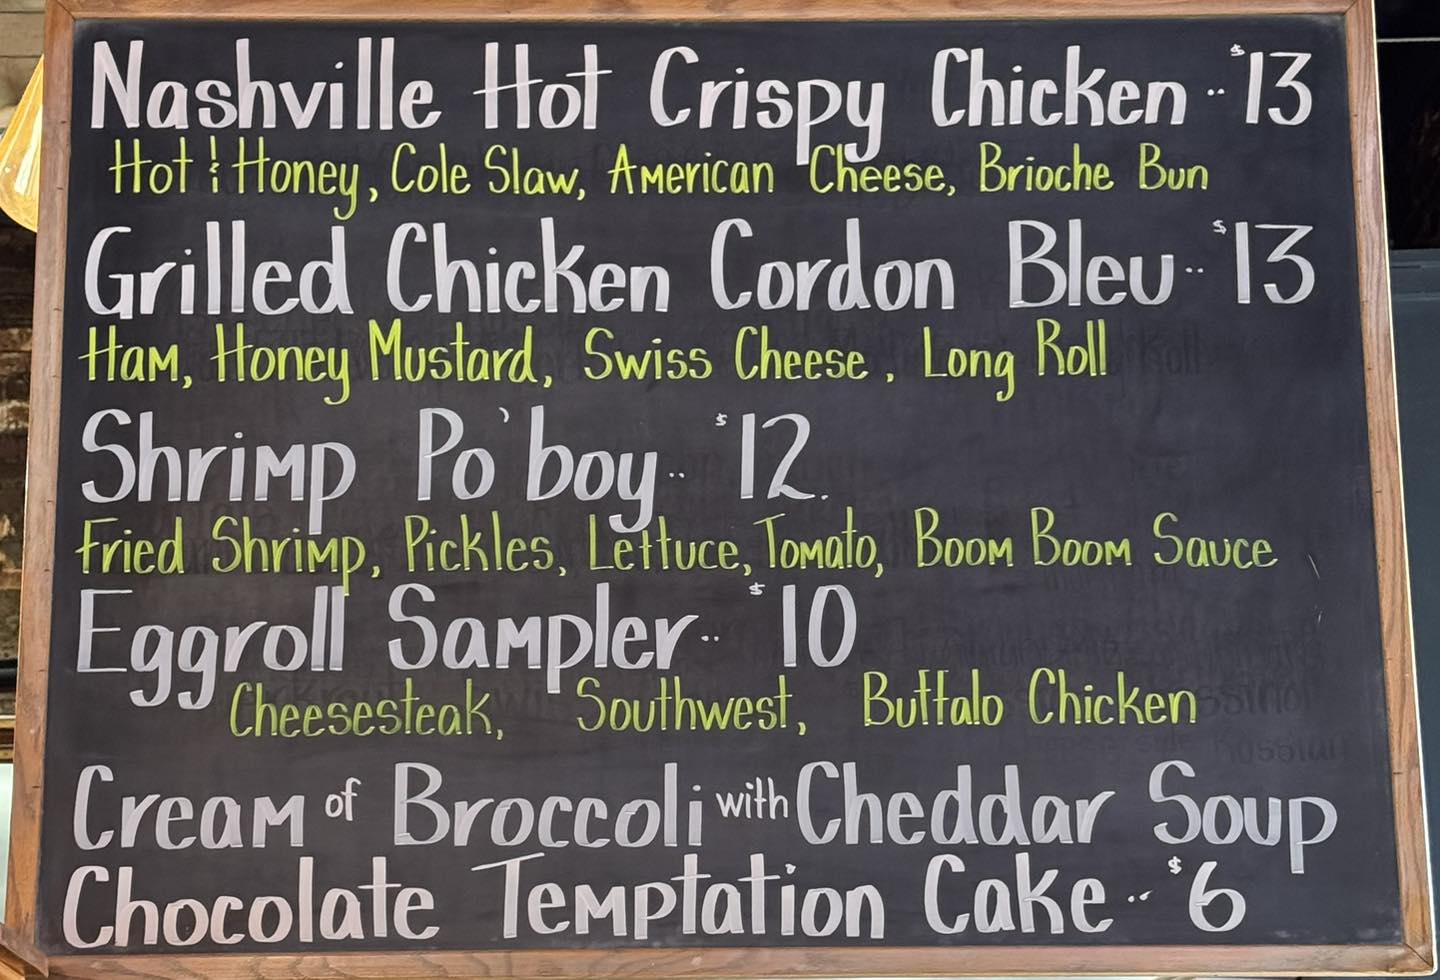 Nashville Hot Crispy Chicken .. $13
Hot & Honey, Cole Slaw, American Cheese, Brioche Bun
Grilled Chicken Cordon Bleu .. $13
Ham, Honey Mustard, Swiss Cheese, Long Roll
Shrimp Po'boy .. $12.
Fried Shrimp, Pickles, Lettuce, Tomato, Boom Boom Sauce
Eggroll Sampler .. $10
Cheesesteak, Southwest, Buffalo Chicken
Cream of Broccoli with Cheddar Soup
Chocolate Temptation Cake .. $6